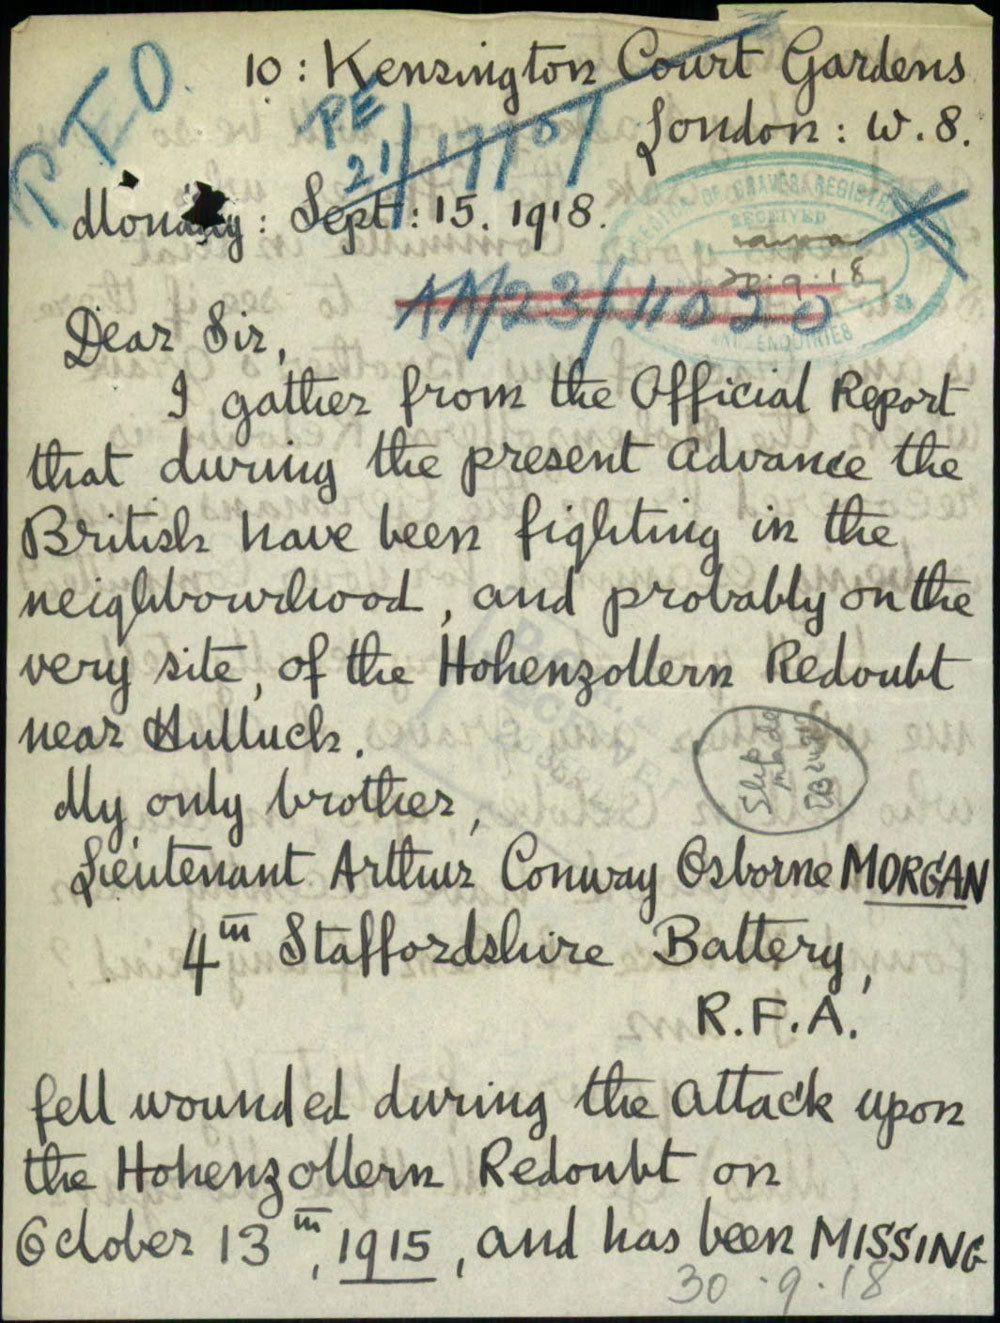 P.T.O.
10 : Kensington Court Gardens
London : W. 8.
PE
21/17707
Monday : Sept : 15. 1918.
OF GRAVES REGISTR
RECEIVED
20.9.18
ENQUIRIES
AM/23/11020
Dear Sir,
I gather from the Official Report
that during the present advance the
British have been fighting in the
neighbourhood, and probably on the
very site, of the Hohenzollern Redoubt
near Hulluch.
Slip
made
My only brother,
Lieutenant Arthur Conway Osborne MORGAN
4th Staffordshire Battery,
R.F.A.
fell wounded during the attack upon
the Hohenzollern Redoubt on
October 13th, 1915, and has been MISSING
30.9.18